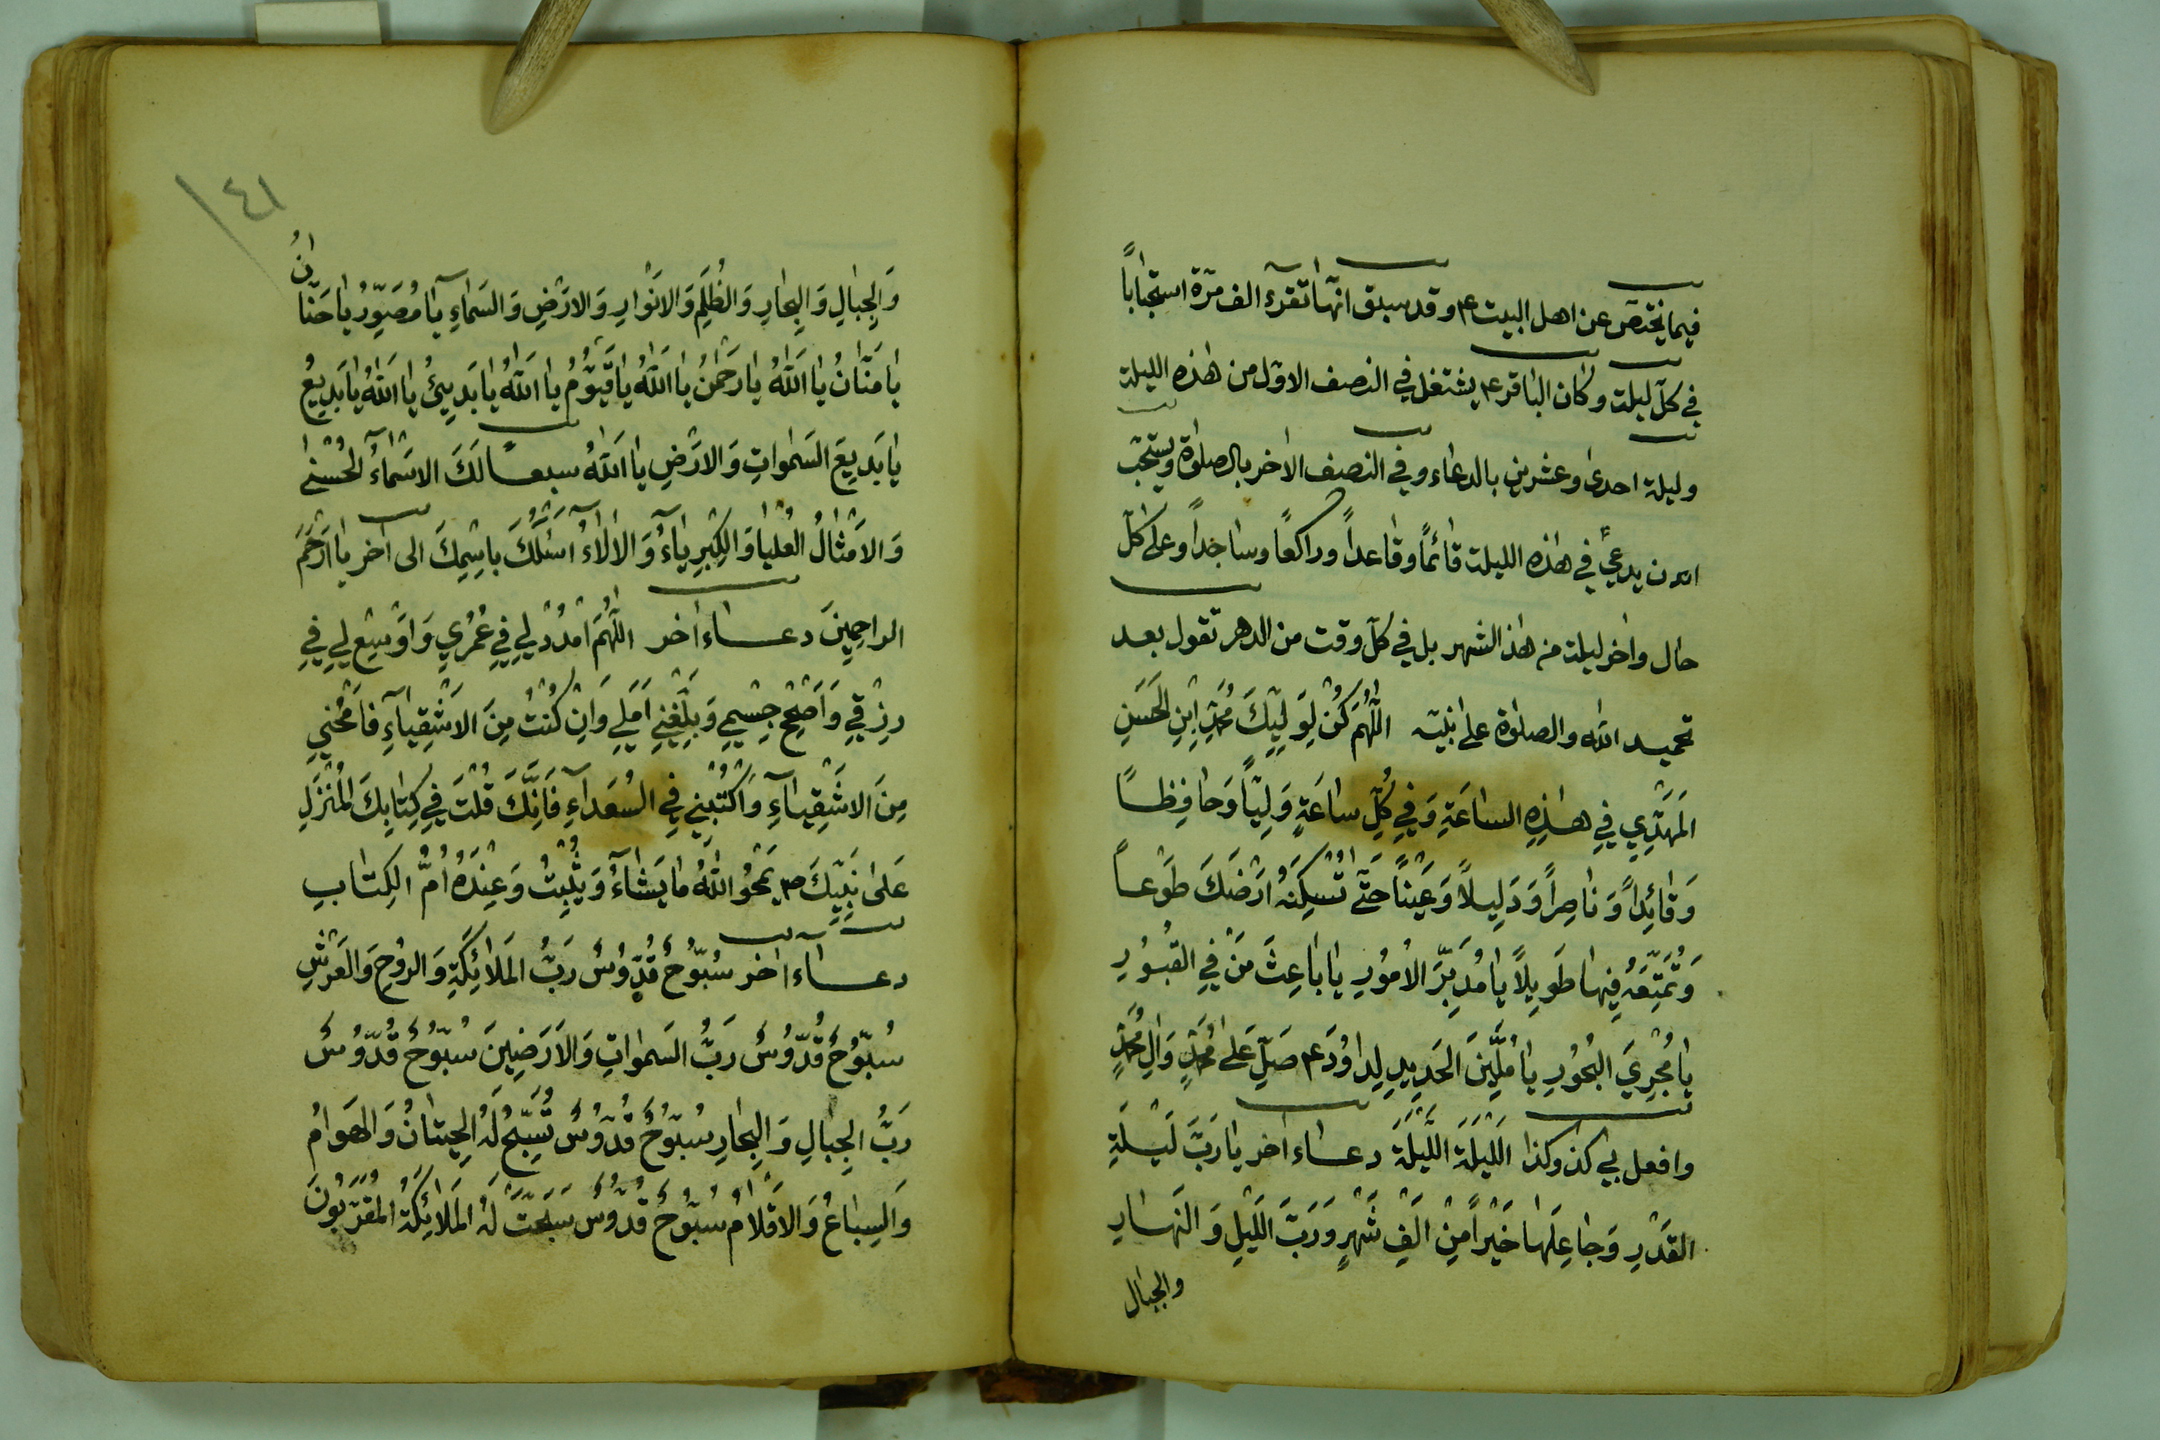 فيما يختصّ عن اهل البيت ع۴ وقد سبق انّها تقرء الف مرّة استحباباً
في كلّ ليلة وكان الباقر ع۴ يشتغل في النصف الاوّل من هٰذه الليلة
وليلة احدى وعشرين بالدعاء وفي النصف الاخر بالصلوٰة ويستحبّ
ان يدعىٰ في هٰذه الليلة قائماً وقاعداً وراكعاً وساجداً وعلى كلّ
حال واٰخر ليلة من هٰذ الشهر بل في كلّ وقت من الدهر تقول بعد
تحميد الله والصلوٰة على نبيّه اَللّٰهُمَّ كُنْ لِوَلِيِّكَ مُحَمَّدِ ابْنِ الْحَسَنِ
الْمَهْدِيِّ فِي هٰذِهِ السّاعَةِ وَفِي كُلِّ ساعَةٍ وَلِيّاً وَحافِظاً
وَقائِداً وَناصِراً وَدَلِيلاً وَعَيْناً حَتّٰى تُسْكِنَهُ اَرْضَكَ طَوْعاً
وَتُمَتِّعَهُ فِيها طَوِيلاً يا مُدَبِّرَ الْاُمُورِ يا باعِثَ مَنْ فِي الْقُبُورِ
يا مُجْرِيَ الْبُحُورِ يا مُلَيِّنَ الْحَدِيدِ لِداوُدَ ع۴ صَلِّ عَلىٰ مُحَمَّدٍ وَاٰلِ مُحَمَّدٍ
وافعل بي كذ وكذا اَللَّيْلَةَ اللَّيْلَةَ دعاء اٰخر يا رَبَّ لَيْلَةِ
الْقَدْرِ وَجاعِلَها خَيْراً مِنْ اَلْفِ شَهْرٍ وَرَبَّ اللَّيْلِ وَالنَّهارِ
والجبال
١٤١
وَالْجِبالِ وَالْبِحارِ وَالظُّلَمِ وَالْاَنْوارِ وَالْاَرْضِ وَالسَّماءِ يا مُصَوِّرُ يا حَنّانُ
يا مَنّانُ يا اَللهُ يا رَحْمٰنُ يا اَللهُ يا قَيُّومُ يا اَللهُ يا بَدِيئُ يا اَللهُ يا بَدِيعُ
يا بَدِيعَ السَّمٰواتِ وَالْاَرْضِ يا اَللهُ سبعاً لَكَ الْاَسْماءُ الْحُسْنىٰ
وَالْاَمْثالُ الْعُلْيا وَالْكِبْرِياءُ وَالْاٰلاءُ اَسْئَلُكَ بِاسْمِكَ الى اٰخر يا اَرْحَمَ
الراحِمِينَ دعاء اٰخر اَللّٰهُمَّ امْدُدْ لِي فِي عُمُرِي وَاَوْسِعْ لِي فِي
رِزْقِي وَاَصِحَّ جِسْمِي وَبَلِّغْنِي اَمَلِي وَاِنْ كُنْتُ مِنَ الْاَشْقِياءِ فَامْحُنِي
مِنَ الْاَشْقِياءِ وَاكْتُبْنِي فِي السُّعَداءِ فَاِنَّكَ قُلْتَ فِي كِتابِكَ الْمُنْزَلِ
عَلىٰ نَبِيِّكَ ص۴ يَمْحُو اللهُ ما يَشاءُ وَيُثْبِتُ وَعِنْدَهُ اُمُّ الْكِتابِ
دعاء اٰخر سُبُّوحٌ قُدُّوسٌ رَبُّ الْمَلائِكَةِ وَالرُّوحِ وَالْعَرْشِ
سُبُّوحٌ قُدُّوسٌ رَبُّ السَّمٰواتِ وَالْاَرَضِينَ سُبُّوحٌ قُدُّوسٌ
رَبُّ الْجِبالِ وَالْبِحارِ سُبُّوحٌ قُدُّوسٌ تُسَبِّحُ لَهُ الْحِيتانُ وَالْهَوامُ
وَالسِّباعُ وَالْاَقْلامُ سُبُّوحٌ قُدُّوسٌ سَبَّحَتْ لَهُ الْمَلائِكَةُ الْمُقَرَّبُونَ